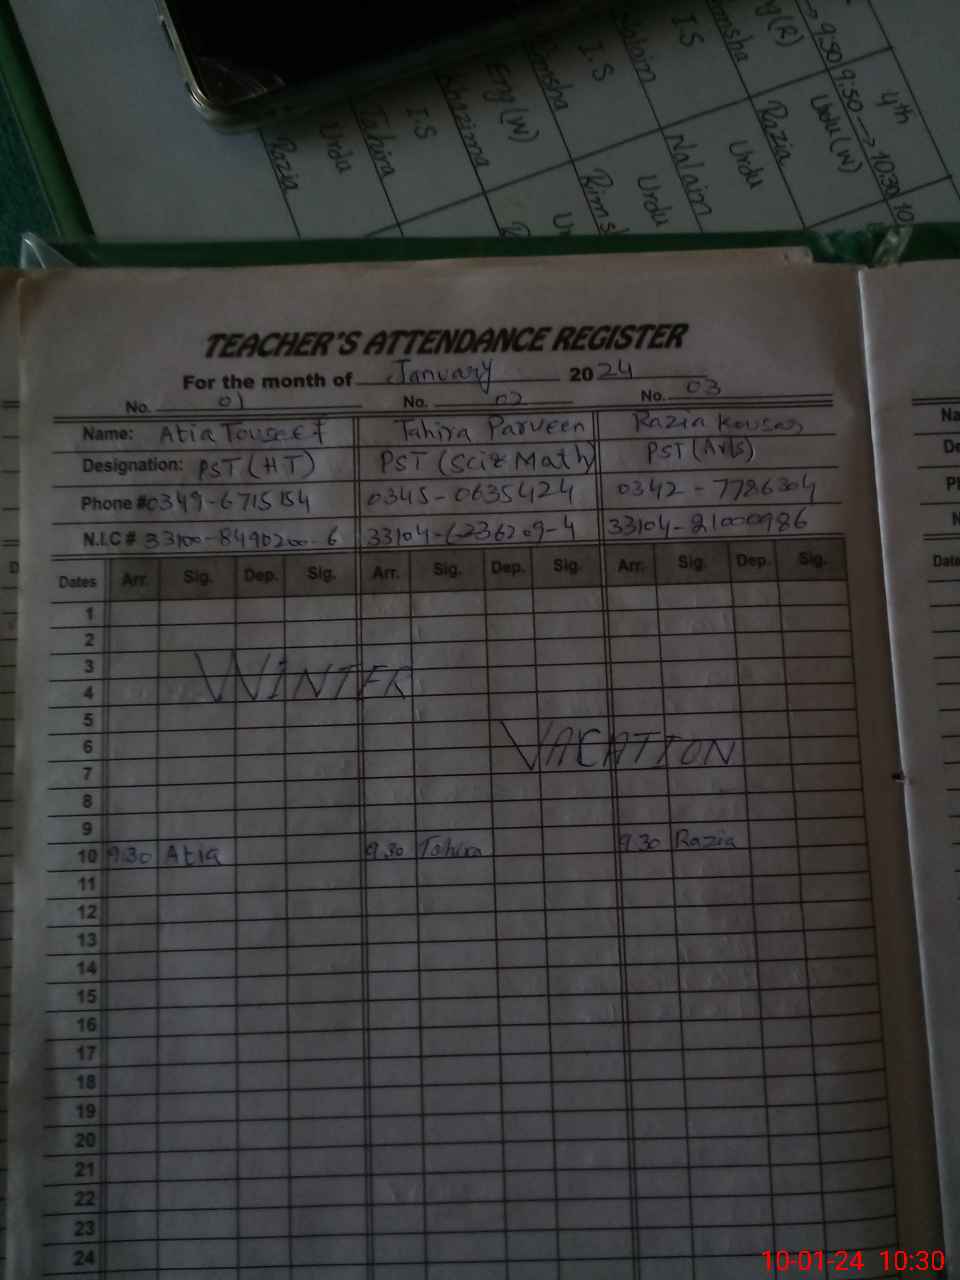 4th
9:50 9:50 → 10:30 10
I.S
Urdu(W)
Salam
I.S
Razia
Urdu
Nalain
Urdu
Eng(W)
Shazima
I.S
Tahira
Urdu
Razia
TEACHER'S ATTENDANCE REGISTER
For the month of January 2024
No. 01 No. 02 No. 03
Name: Atia Touseef Tahira Parveen Razia Kousar
Designation: PST (HT) PST (Sci & Math) PST (Arts)
Phone # 0349-6715154 0345-0635424 0342-7786304
N.I.C # 33100-8490200-6 33104-6236209-4 33104-21000986
Dates Arr. Sig. Dep. Sig. Arr. Sig. Dep. Sig. Arr. Sig. Dep. Sig.
1
2
3
WINTER
4
5
6 VACATION
7
8
9
10 9:30 Atia 9:30 Tahira 9:30 Razia
11
12
13
14
15
16
17
18
19
20
21
22
23
24
10-01-24 10:30